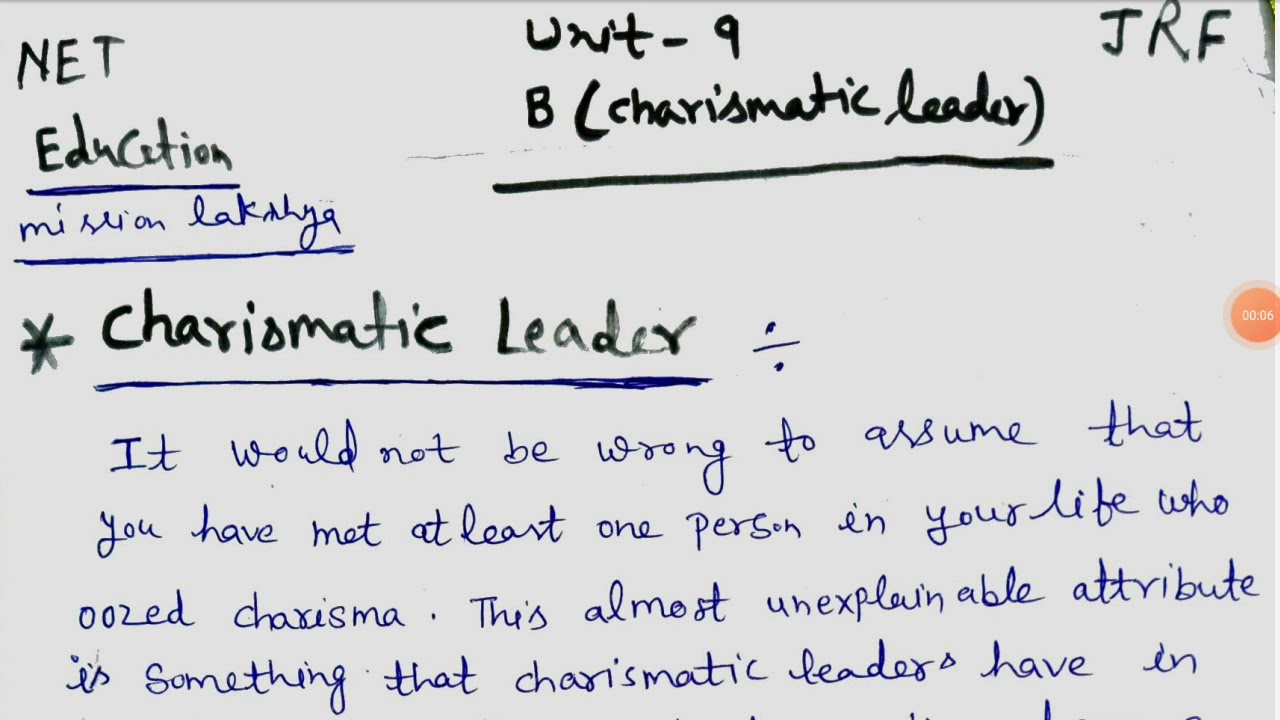 NET
Unit - 9
JRF
B (charismatic leader)
Education
mission lakshya
* Charismatic Leader ÷
00:06
It would not be wrong to assume that
you have met atleast one person in your life who
oozed charisma. This almost unexplainable attribute
is something that charismatic leaders have in